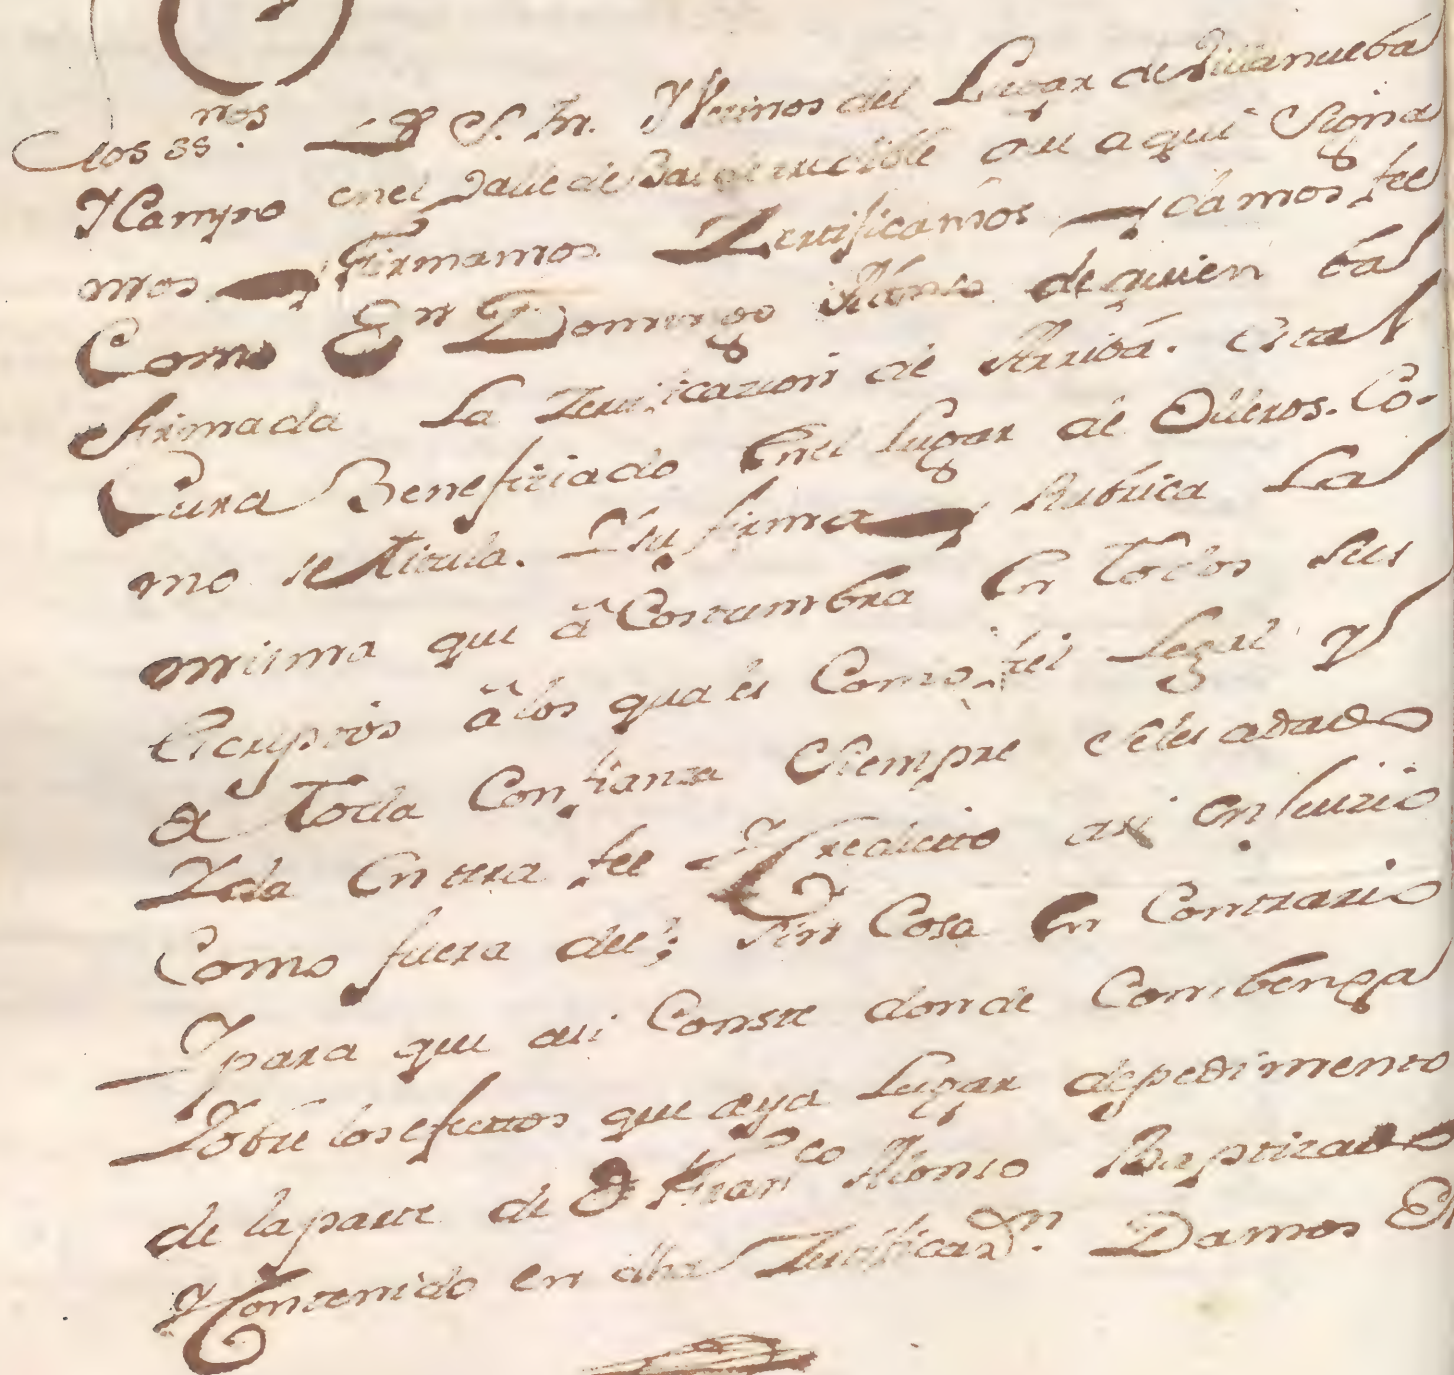 los ss.nos De S. M. Vecinos del Lugar de Villanueba
Y Campo en el Valle de Baldelucible que aqui Signa
mos y firmamos Zertificamos y damos fee
Como Dn Domingo Alonso de quien ba
firmada La Zertificazion de Arriba. es tal
Cura Benefiziado En el lugar de Olleros. Co-
mo se titula. I su firma y Rubrica La
misma que âCostumbra En Todos sus
Escriptos â los quales Como fiel Legal y
de Toda Confianza Siempre se les a dado
I da Entera fee Y Credicto asi En Juizio
Como fuera del; sin Cosa En Contrario
I para que asi Conste donde Combenga
I obre los efectos que aya Lugar de pedimento
de la parte de Dn Franco Alonso Baptizado
Y Contenido en dha Zertificazon. Damos El